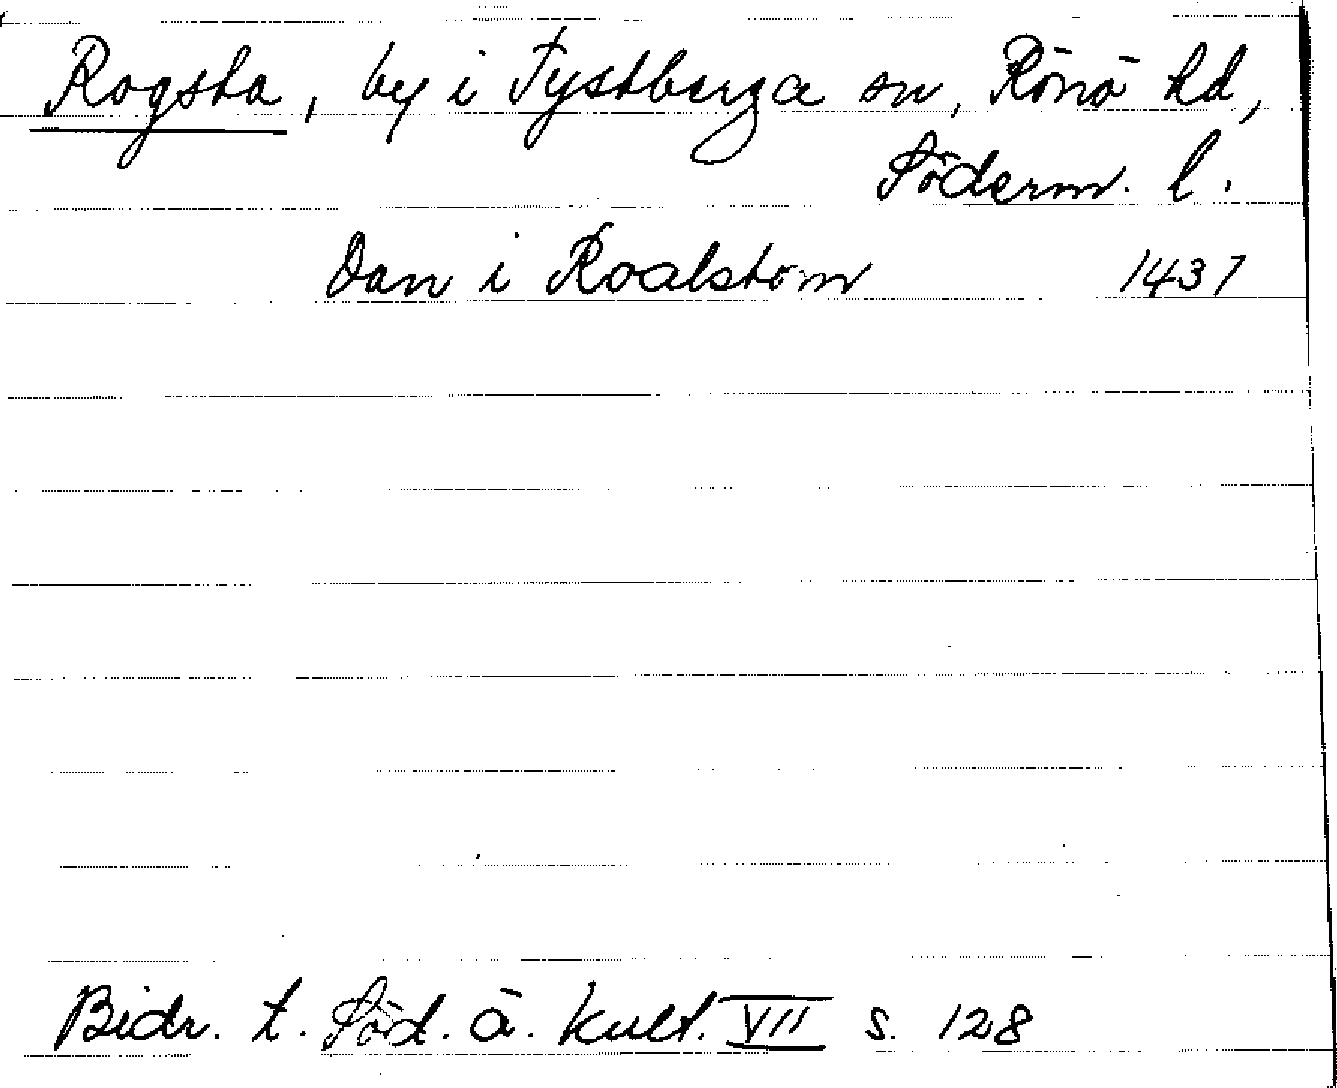 Rogsta, by i Tystberga sn, Rönö hd,
Söderm. l.
Dan i Roalstom 1437
Bidr. t. Söd. ä. kult. VII s. 128